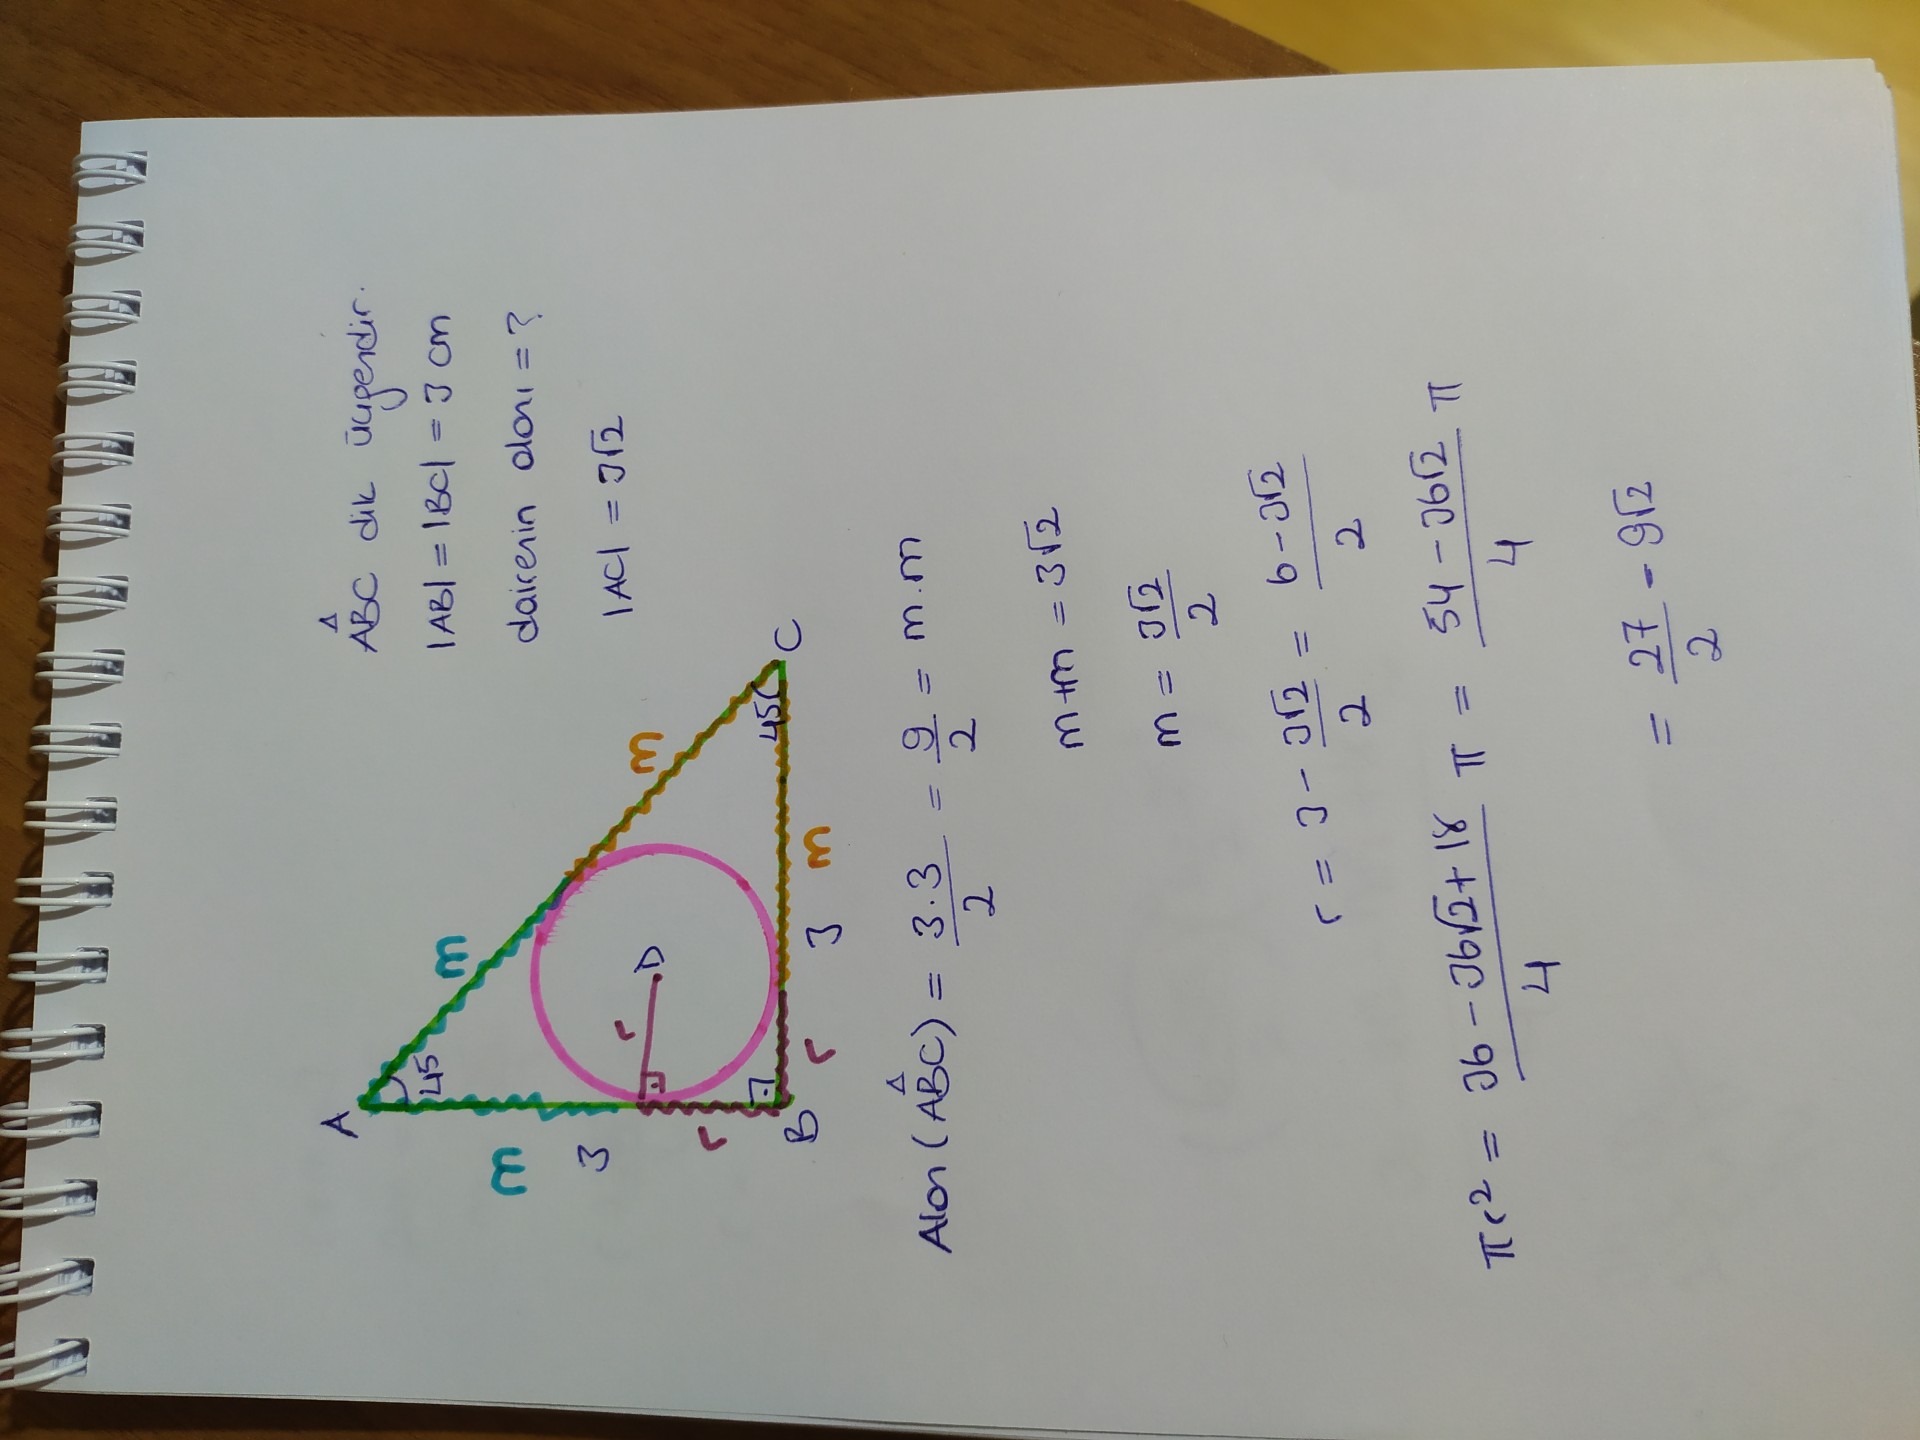 ABC dik üçgendir.
|AB| = |BC| = 3 cm
dairenin alanı = ?
|AC| = 3√2
A
45
m
m
3
r
r
D
r
B
3
m
m
45
C
Alan (ABC) = 3.3/2 = 9/2 = m.m
m+m = 3√2
m = 3√2/2
r = 3 - 3√2/2 = 6-3√2/2
πr² = 36-36√2+18/4 π = 54-36√2/4 π
= 27/2 - 9√2